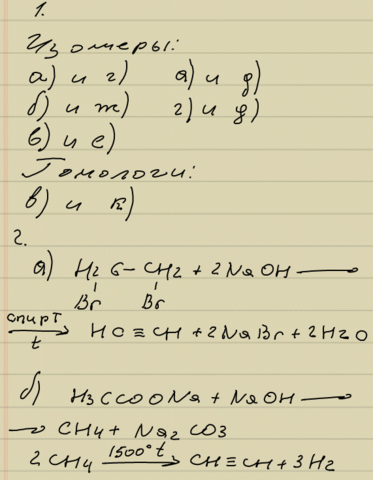 1.
Изомеры:
а) и г)    а) и д)
б) и ж)    г) и д)
в) и е)
Гомологи:
в) и к)
2.
а) H2C–CH2 + 2NaOH ⟶
Br    Br
спирт
⟶ HC≡CH + 2NaBr + 2H2O
t
б) H3CCOONa + NaOH ⟶
⟶ CH4 + Na2CO3
2CH4 —1500° t→ CH≡CH + 3H2